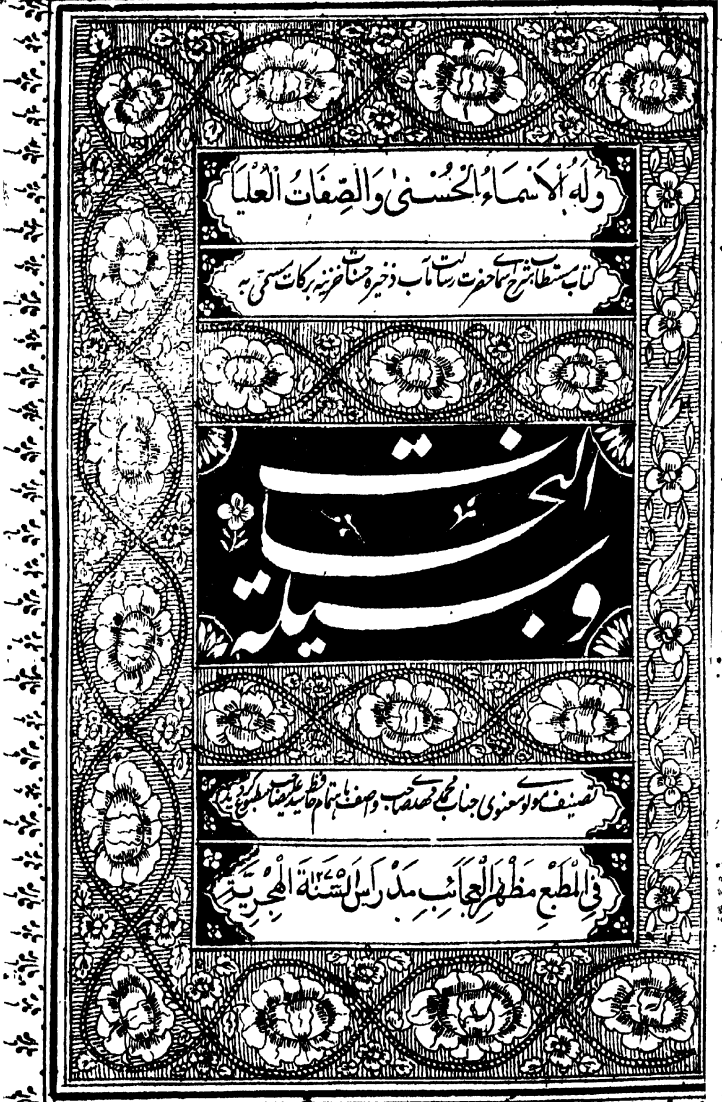 وَلَهُ الْاَسْمَاءُ الْحُسْنٰى وَالصِّفَاتُ الْعُلْيَا
کتاب مستطاب شرح اسمای حضرت رسالت مآب ذخیره حسنات خزینه برکات مسمّی به
وسیلة النجات
تصنیف مولوی معنوی جناب محمد مهدی صاحب واصف باهتمام حافظ سید
فِي الْمَطْبَعِ مَظْهَرِ الْعَجَائِبِ مَدْرَاسَ السَّنَةَ الْهِجْرِيَّةِ